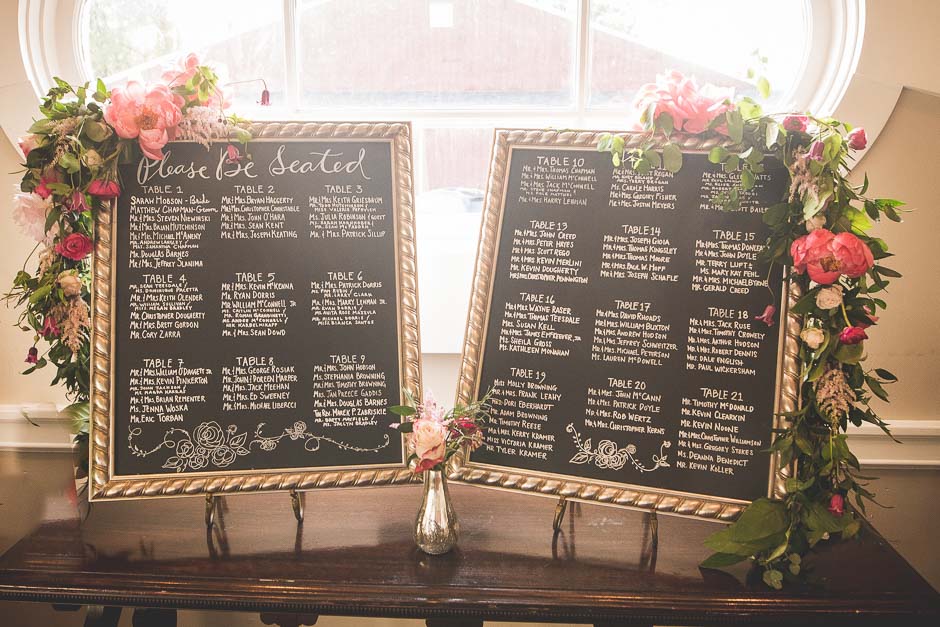 Please Be Seated
TABLE 1
SARAH HOBSON - Bride
MATTHEW CHAPMAN - Groom
MR & MRS STEVEN NEWINS
MR & MRS BRIAN MUTCHINSON
MR & MRS MICHAEL MCANENY
MR. ANDREW LANGLEY
MS. SAMANTHA CHAPMAN
MR. DOUGLAS BARNES
MR & MRS JEFFREY SLANINA
TABLE 2
MR & MRS BRYAN HAGGERTY
MR & MRS CHRISTOPHER CONSTABLE
MR & MRS. JOHN O'HARA
MR & MRS. SEAN KENT
MR & MRS. JOSEPH KEATING
TABLE 3
MR & MRS KEITH GRIESBAUM
MS. JULIA ROBINSON & GUEST
MR & MRS PATRICK SILL
TABLE 4
MR. SEAN TEESDALE
MS. DOMINIQUE PALETTA
MR & MRS KEITH OLENDER
MR. WILLIAM SULLIVAN
MR. CHRISTOPHER DOUGHERTY
MR & MRS BRETT GORDON
MR. CORY ZARRA
TABLE 5
MR & MRS KEVIN MCKENNA
MR. RYAN DORRIS
MR & MRS WILLIAM MCCONNELL JR
MR & MRS SEAN DOWD
TABLE 6
MR & MRS PATRICK DORRIS
MR & MRS HARRY LEHMAN JR
MS. ANITA ROSE MAZZULA
MISS BIANCA SANTOS
TABLE 7
MR & MRS WILLIAM O'DAGGETT
MR & MRS. KEVIN PINKERTON
MR & MRS BRIAN REMENTER
MS. JENNA WOSKA
MR. ERIC TORBAN
TABLE 8
MR & MRS. GEORGE ROSIAK
MR & MRS. JOHN & DOREEN MARPER
MR & MRS. JACK MEEHAN
MR & MRS. ED SWEENEY
MR & MRS. MICHAEL LIBERCCI
TABLE 9
MR & MRS. JOHN HODSON
MS. STEPHANIA BROWNING
MR & MRS. TIMOTHY BROWNING
MS. JAN PREECE GADDIS
MR & MRS. DOUGLAS BARNES
THE REV. MAREK P. ZABRISKIE
MR. BRETT MAYFIELD
MS. JACLYN BRADLEY
TABLE 10
MR & MRS JAMES MCCONNELL
MR & MRS WILLIAM MCCONNELL
MR & MRS. JACK MCCONNELL
MR & MRS. HARRY LEHMAN
REGAN
MS. CAROLE HARRIS
MR & MRS. GREGORY FISHER
MR & MRS. JUSTIN MEYERS
WATTS
TABLE 13
MR & MRS. JOHN CREED
MR & MRS. PETER HAYES
MR & MRS. SCOTT REGO
MR & MRS. KEVIN MERLINI
MR. KEVIN DOUGHERTY
MR & MRS. CHRISTOPHER PENNINGTON
TABLE 14
MR & MRS. JOSEPH GIOIA
MR & MRS. THOMAS KINGSLEY
MR & MRS. THOMAS MOORE
MR & MRS. PAUL W. HOPF
MR & MRS. JOSEPH SCHAPLE
TABLE 15
MR & MRS. THOMAS DONLEA
MR & MRS. JOHN DOYLE
MR. TERRY LUFT
MS. MARY KAY FEHL
MR & MRS. MICHAEL BYRNE
MR. GERALD CREED
TABLE 16
MR & MRS WAYNE RASER
MR & MRS. THOMAS TEESDALE
MRS. SUSAN KELL
MR & MRS. JAMES EMCKEEVER JR
MS. SHEILA GROSS
MS. KATHLEEN MONAHAN
TABLE 17
MR & MRS. DAVID RHOADS
MR & MRS. WILLIAM BUXTON
MR & MRS. ANDREW HODSON
MR & MRS. JEFFREY SCHWEIZER
MR & MRS. MICHAEL PETERSON
MS. LAUREN MCDOWELL
TABLE 18
MR & MRS. JACK RUSE
MR & MRS. TIMOTHY CROWLEY
MR & MRS. ARTHUR HUDSON
MR & MRS. ROBERT DENNIS
MRS. DALE ENGLISH
MR. PAUL WICKERSHAM
TABLE 19
MISS MOLLY BROWNING
MR & MRS. FRANK LEAHY
MS. DORI EBERHARDT
MR. ADAM BROWNING
MR & MRS. TIMOTHY REESE
MR & MRS. KERRY KRAMER
MISS VICTORIA KRAMER
MR. TYLER KRAMER
TABLE 20
MR & MRS. JOHN MCCANN
MR & MRS. PATRICK DOYLE
MR & MRS. ROB WERTZ
MR & MRS. CHRISTOPHER KERNS
TABLE 21
MR. TIMOTHY MCDONALD
MR. KEVIN CLARKIN
MR. KEVIN NOONE
MR & MRS. CHRISTOPHER WILLIAMSON
MR & MRS. GREGORY STOKES
MS. DEANNA BENEDICT
MR. KEVIN KOLLER